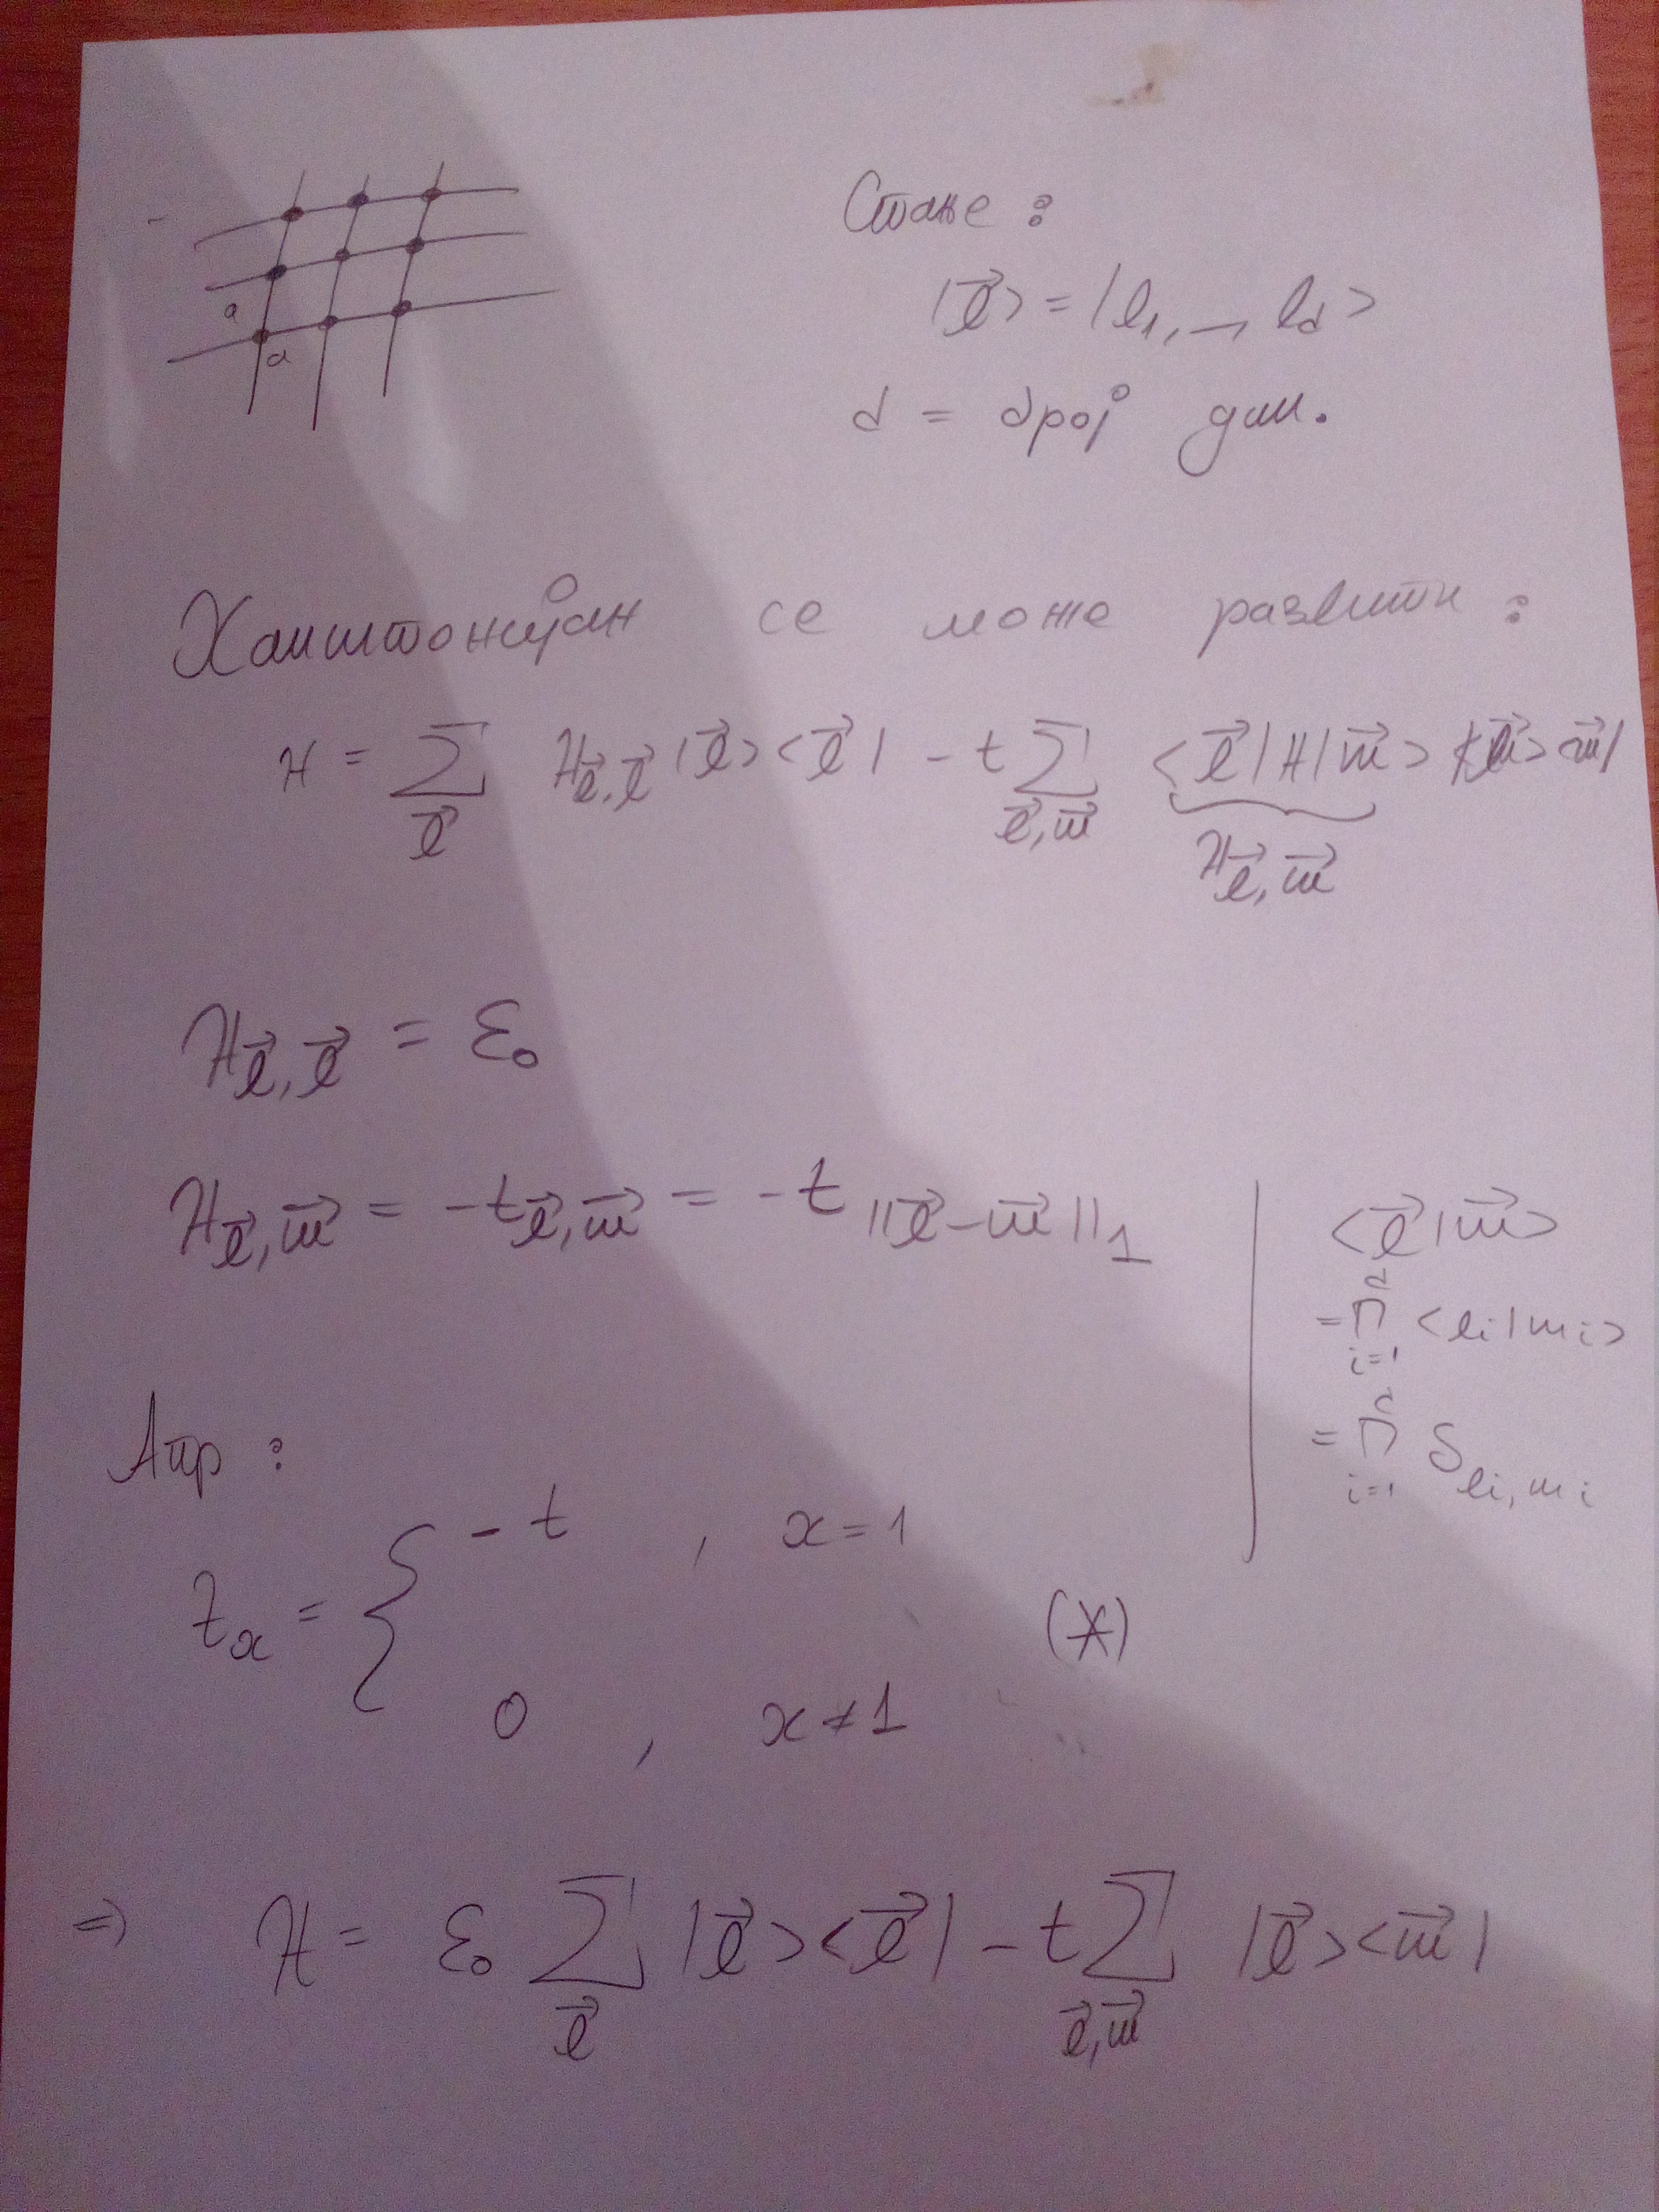 a
a
Стање :
|l⃗> = |l₁, —, l_d>
d = број дим.
Хамилтонијан се може развити :
H = ∑_{l⃗} H_{l⃗,l⃗} |l⃗><l⃗| - t ∑_{l⃗,m⃗} <l⃗|H|m⃗> |l⃗><m⃗|
H_{l⃗,m⃗}
H_{l⃗,l⃗} = ε₀
H_{l⃗,m⃗} = -t_{l⃗,m⃗} = -t_{||l⃗-m⃗||₁}
<l⃗|m⃗>
= ∏_{i=1}^{d} <l_i|m_i>
= ∏_{i=1}^{d} δ_{l_i,m_i}
Апр :
t_x = { -t , x=1
0 , x≠1
(*)
⇒ H = ε₀ ∑_{l⃗} |l⃗><l⃗| - t ∑_{l⃗,m⃗} |l⃗><m⃗|